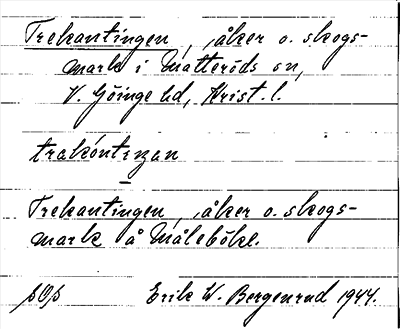 Trekantingen, åker o. skogs-
mark i Matteröds sn,
V. Göinge hd, Krist. l.
trakántingan
Trekantingen, åker o. skogs-
mark å Måleböke.
Erik W. Bergenrud 1944.